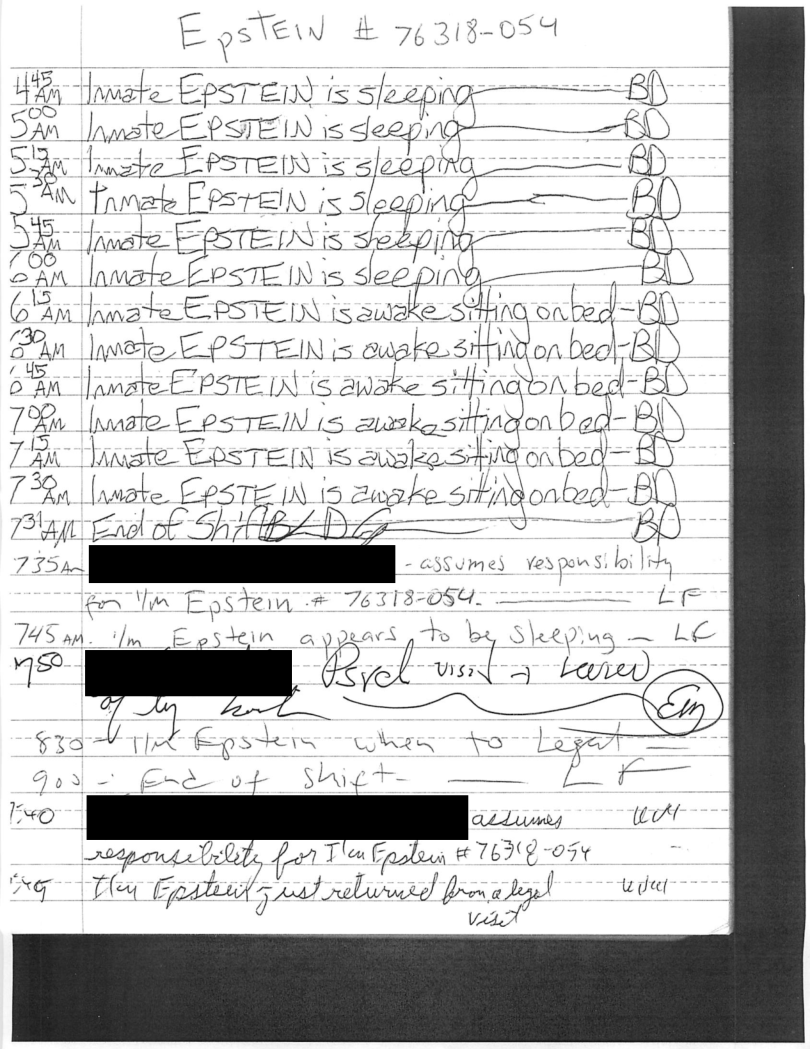 EpSTEIN # 76318-054
4:45 AM Inmate EPSTEIN is sleeping BD
5:00 AM Inmate EPSTEIN is sleeping BD
5:15 AM Inmate EPSTEIN is sleeping BD
5:30 AM Inmate EPSTEIN is sleeping BD
5:45 AM Inmate EPSTEIN is sleeping BD
6:00 AM Inmate EPSTEIN is sleeping BD
6:15 AM Inmate EPSTEIN is awake sitting on bed - BD
6:30 AM Inmate EPSTEIN is awake sitting on bed - BD
6:45 AM Inmate EPSTEIN is awake sitting on bed - BD
7:00 AM Inmate EPSTEIN is awake sitting on bed - BD
7:15 AM Inmate EPSTEIN is awake sitting on bed - BD
7:30 AM Inmate EPSTEIN is awake sitting on bed - BD
7:31 AM End of Shift BD
735 Am - assumes responsibility
for I/m Epstein # 76318-054. LF
745 AM. I/m Epstein appears to be sleeping - LF
750 Psych visit
830 - I/m Epstein when to Legal
900 - End of Shift - LF
:40 assumes
responsibility for I/m Epstein # 76318-054
I/m Epstein just returned from a legal
visit